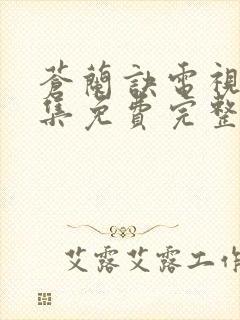 蒼蘭訣電視
集免費完整
艾露艾露工作